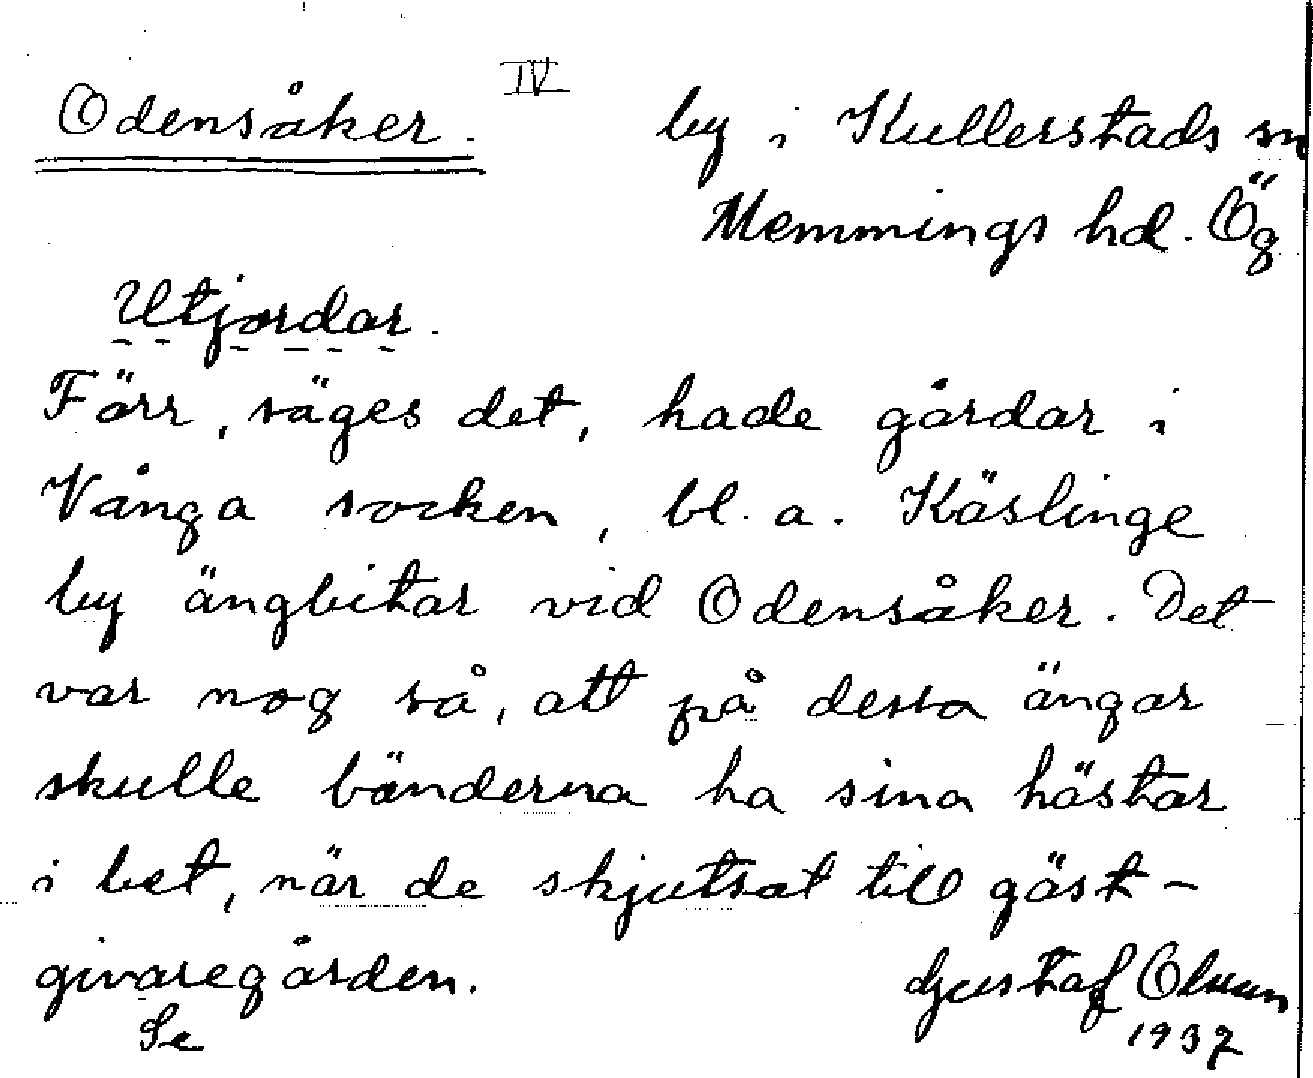 IV
Odensåker. by i Kullerstads sn
Memmings hd. Ög
Utjordar.
Förr, säges det, hade gårdar i
Vånga socken, bl. a. Käslinge
by ängbitar vid Odensåker. Det
var nog så, att på dessa ängar
skulle bönderna ha sina hästar
i bet, när de skjutsat till gäst-
givaregården. Gustaf Olsson
Se 1937